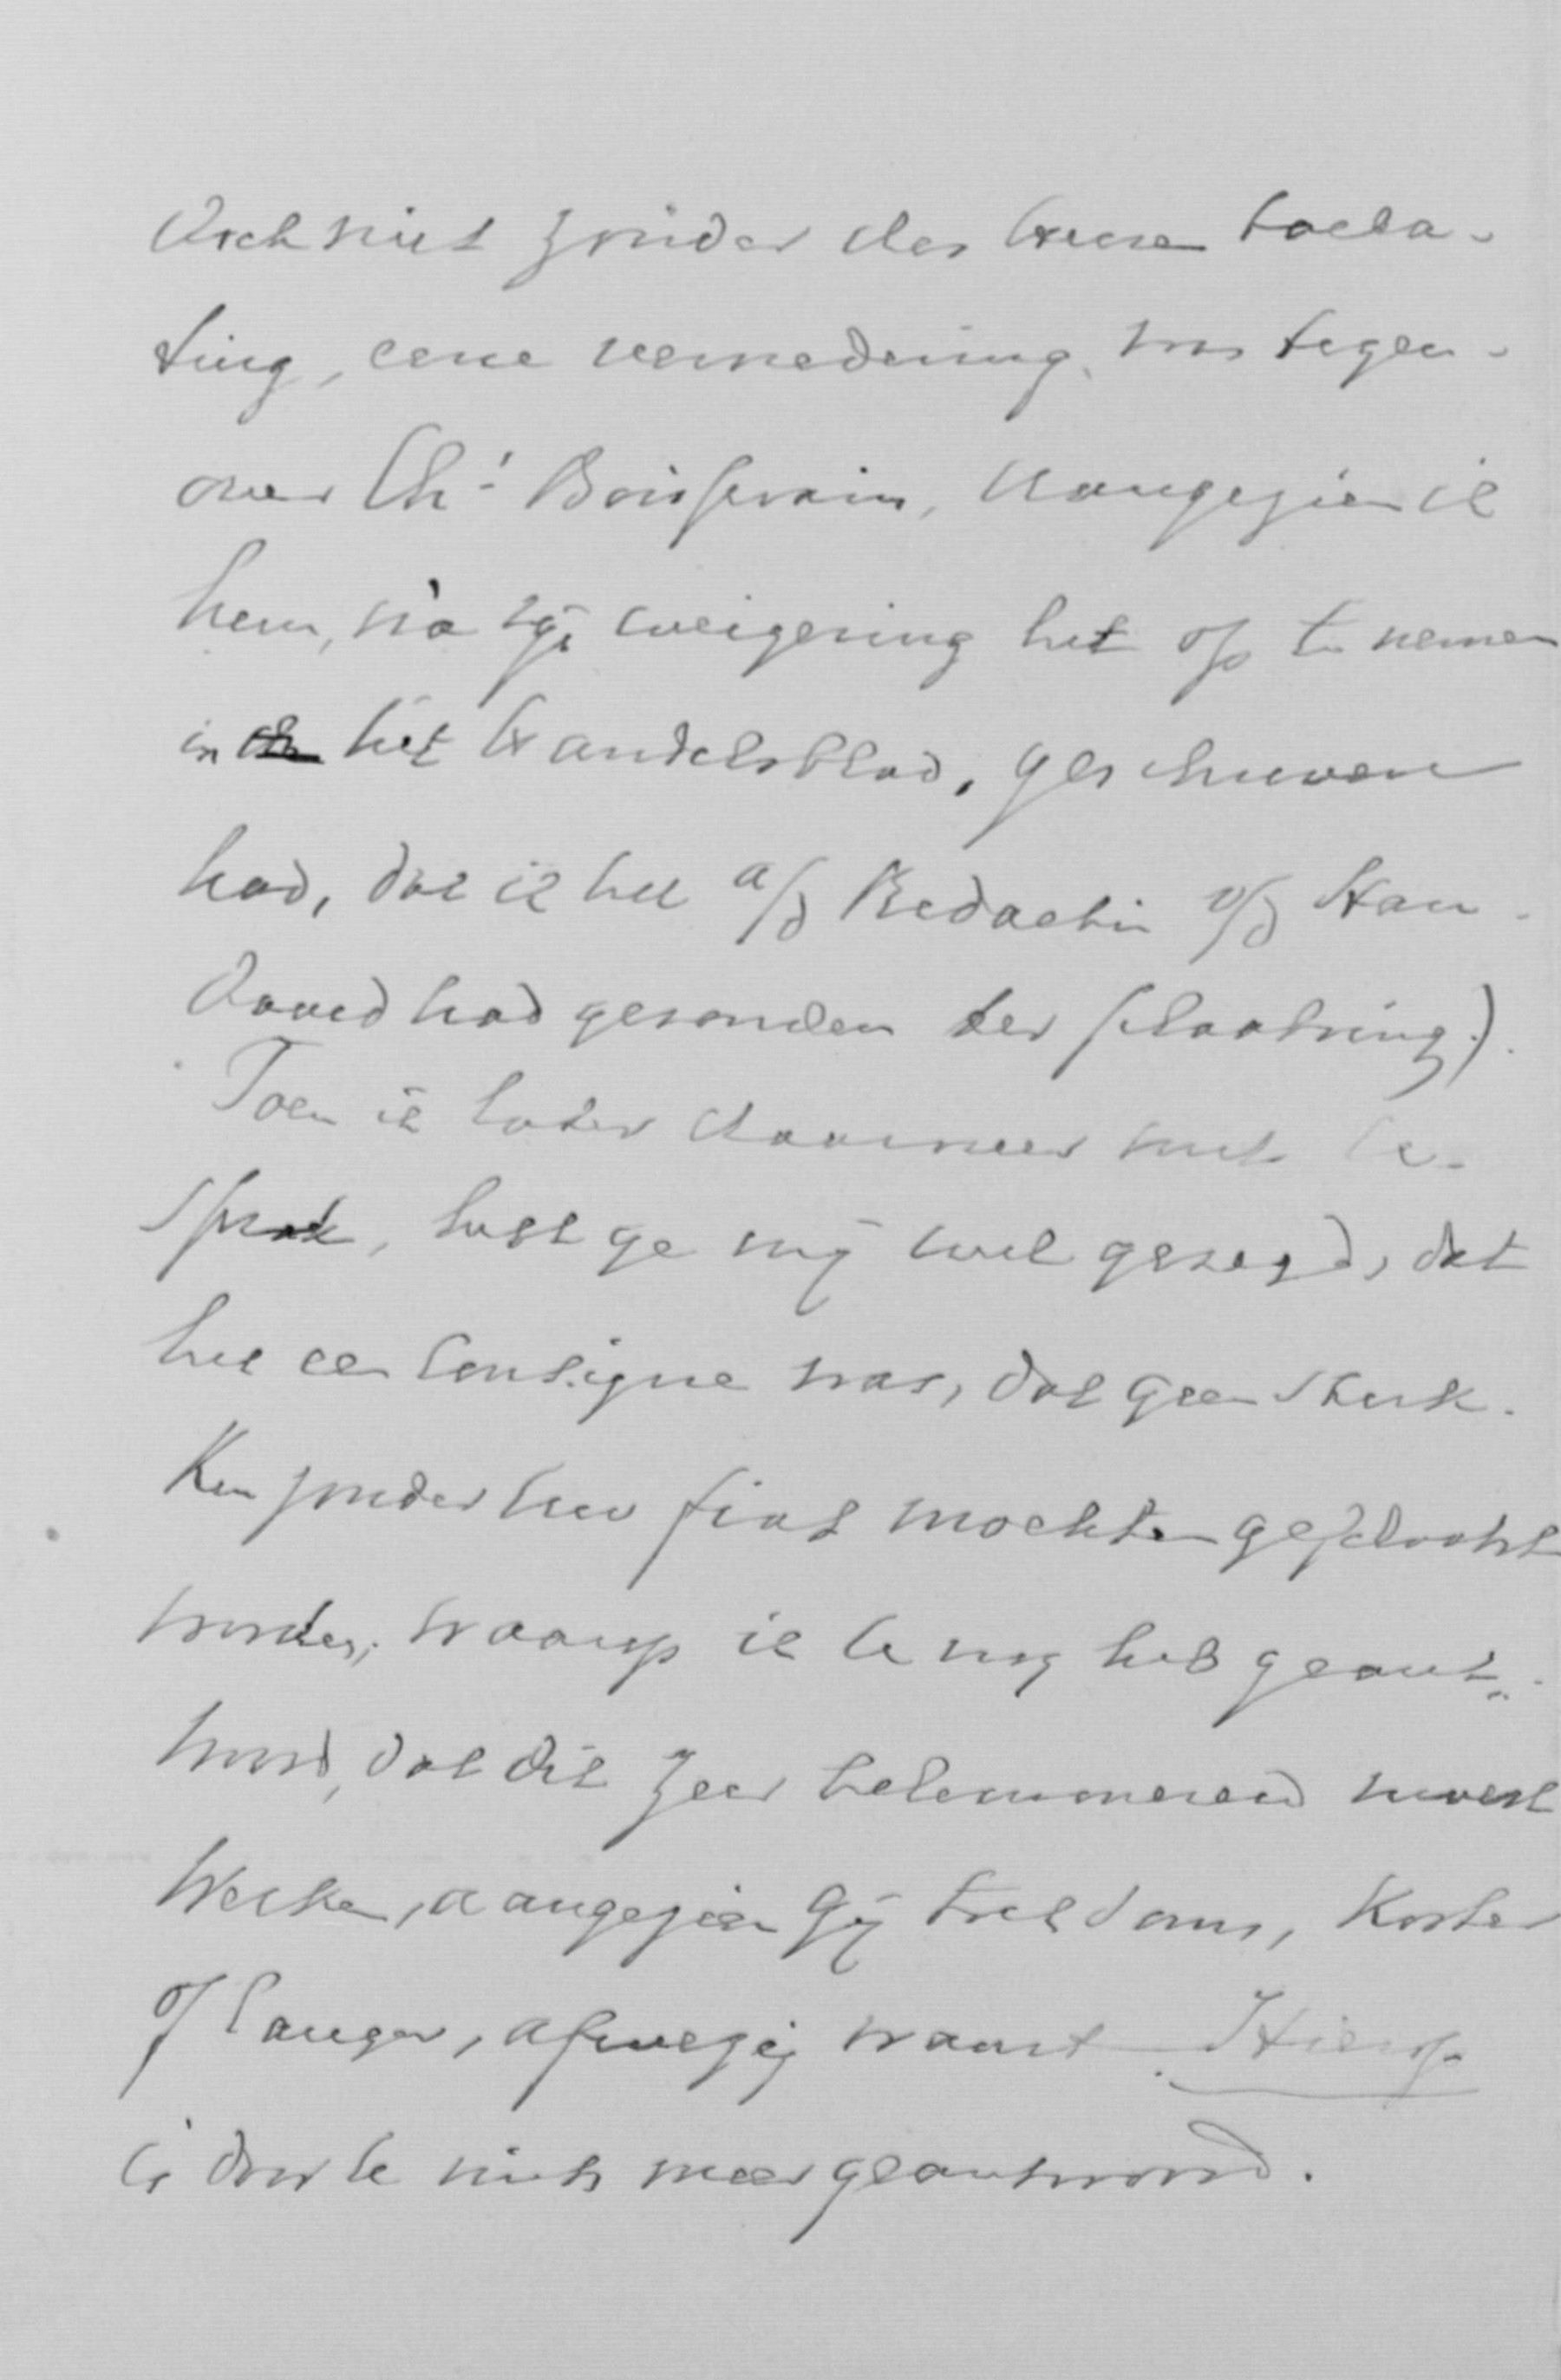 Och niet zonder des Heeren toela-
ting, eene vernedering voor tegen-
over Chs Boissevain, aangezien ik
hem, na zijn weigering het op te nemen
in het Handelsblad, geschreven
had, dat ik het a/d Redactie v/d Stan-
daard had gezonden ter plaatsing).
Toen ik later daarover met U
sprak, hebt ge mij wel gezegd, dat
het een consigne was, dat geen stuk-
ken zonder Uw fiat mochten geplaatst
worden; waarop ik U nog heb geant-
woord, dat dit zeer belemmerend moest
werken, aangezien gij treldoms, korter
of langer, afwezig waart. Hierop
is door U niets meer geantwoord.